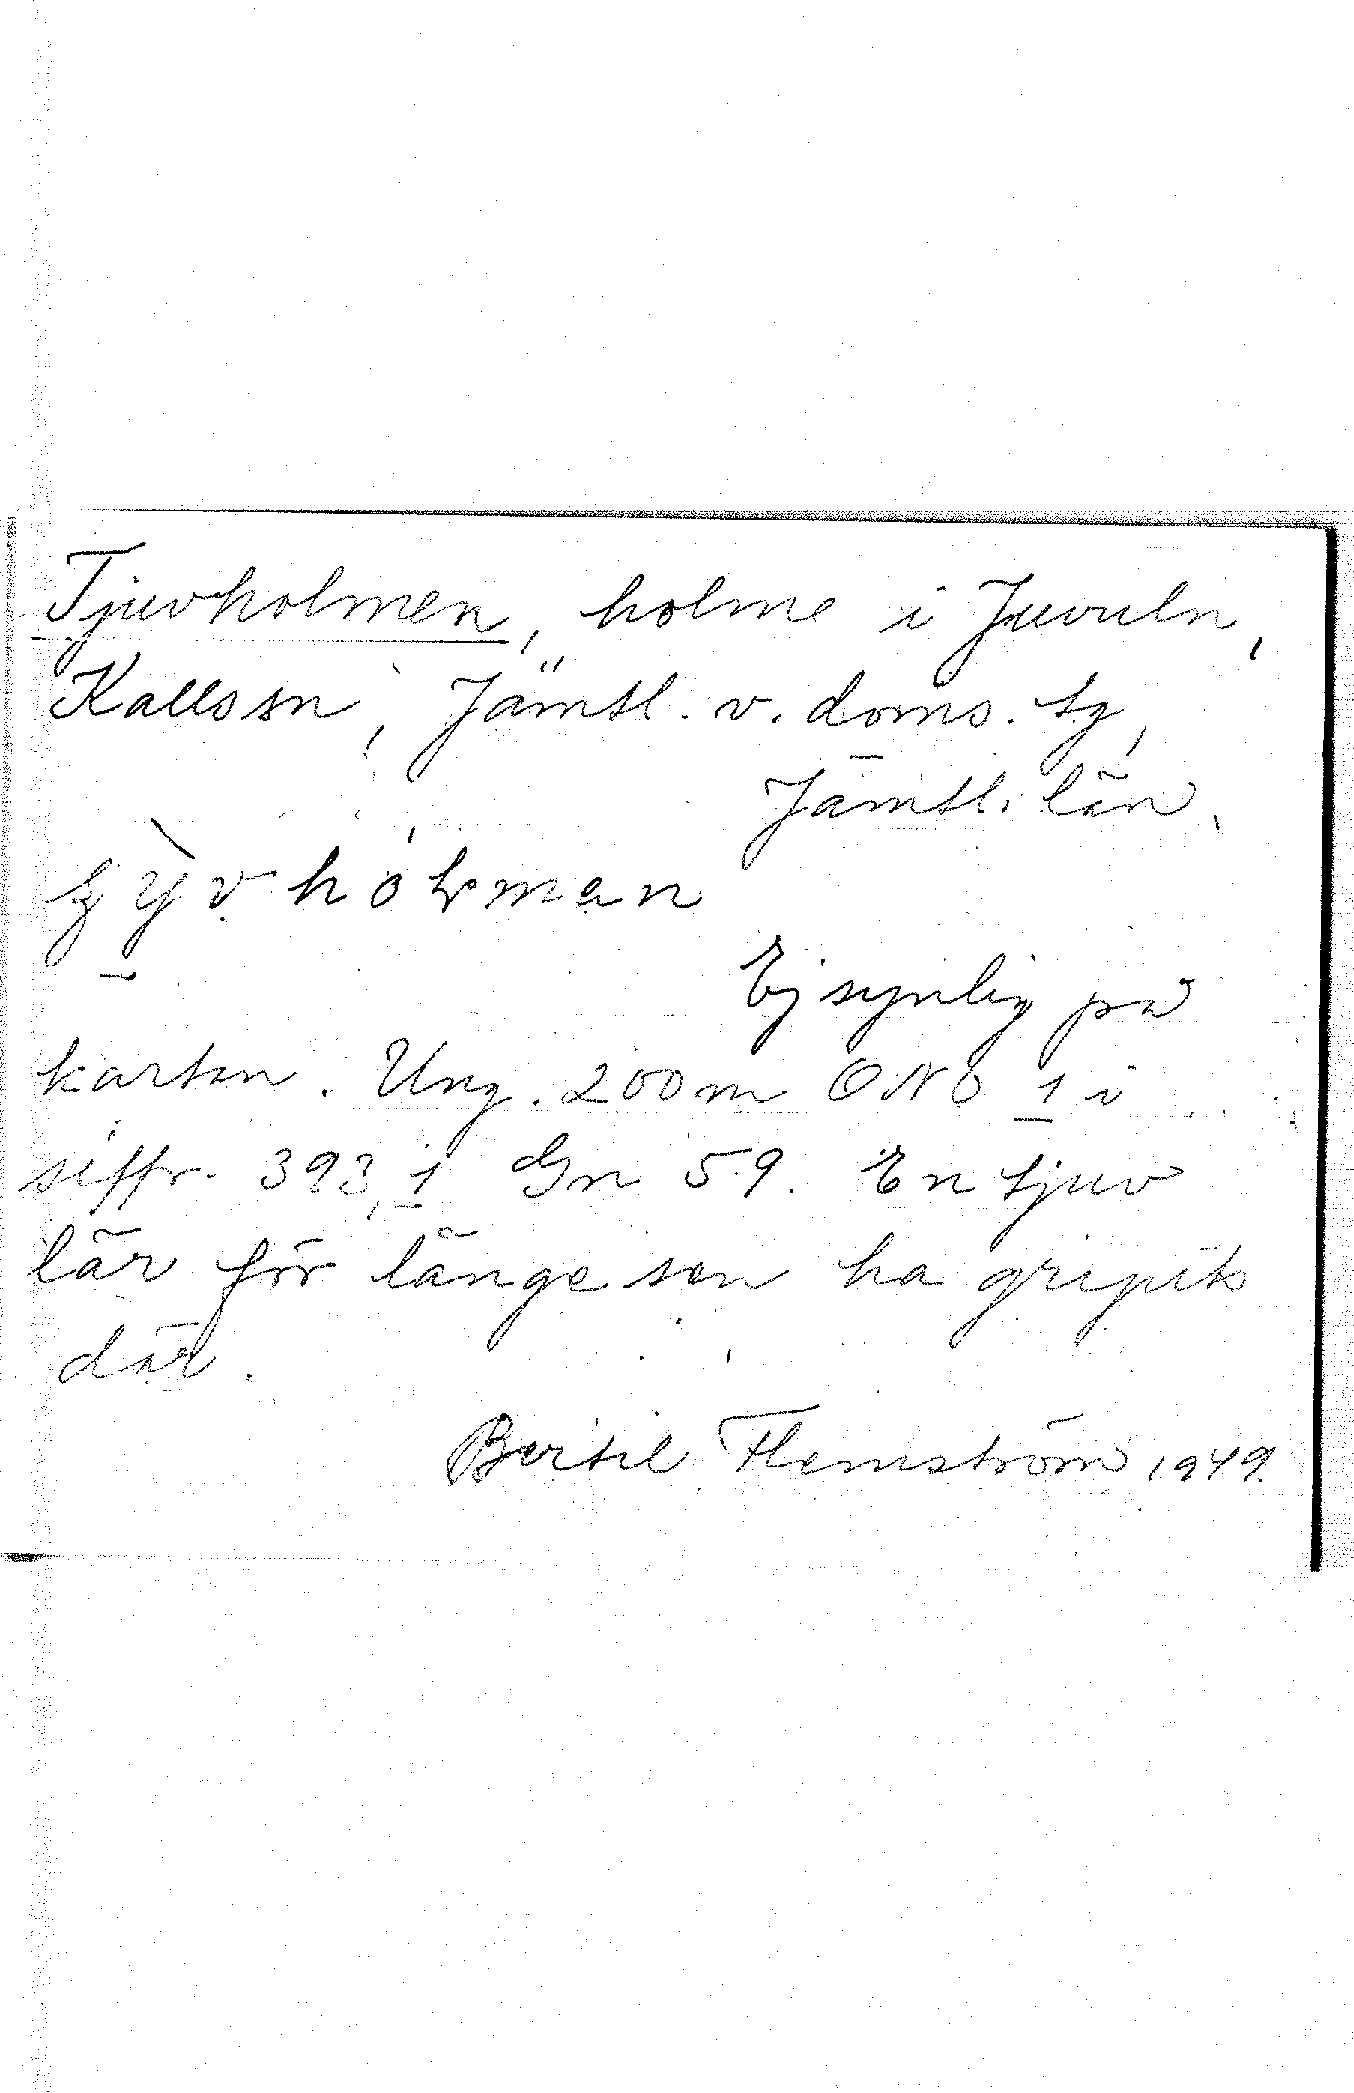 Tjuvholmen, holme i Juvuln,
Kalls sn, Jämtl. v. doms. tg,
Jämtl. län.
Ej synlig på
kartan. Ung. 200 m ONO 1 i
siffr. 393,1 Gn 59. En tjuv
lär för länge sen ha gripits
där.
Bertil Flemström 1949.